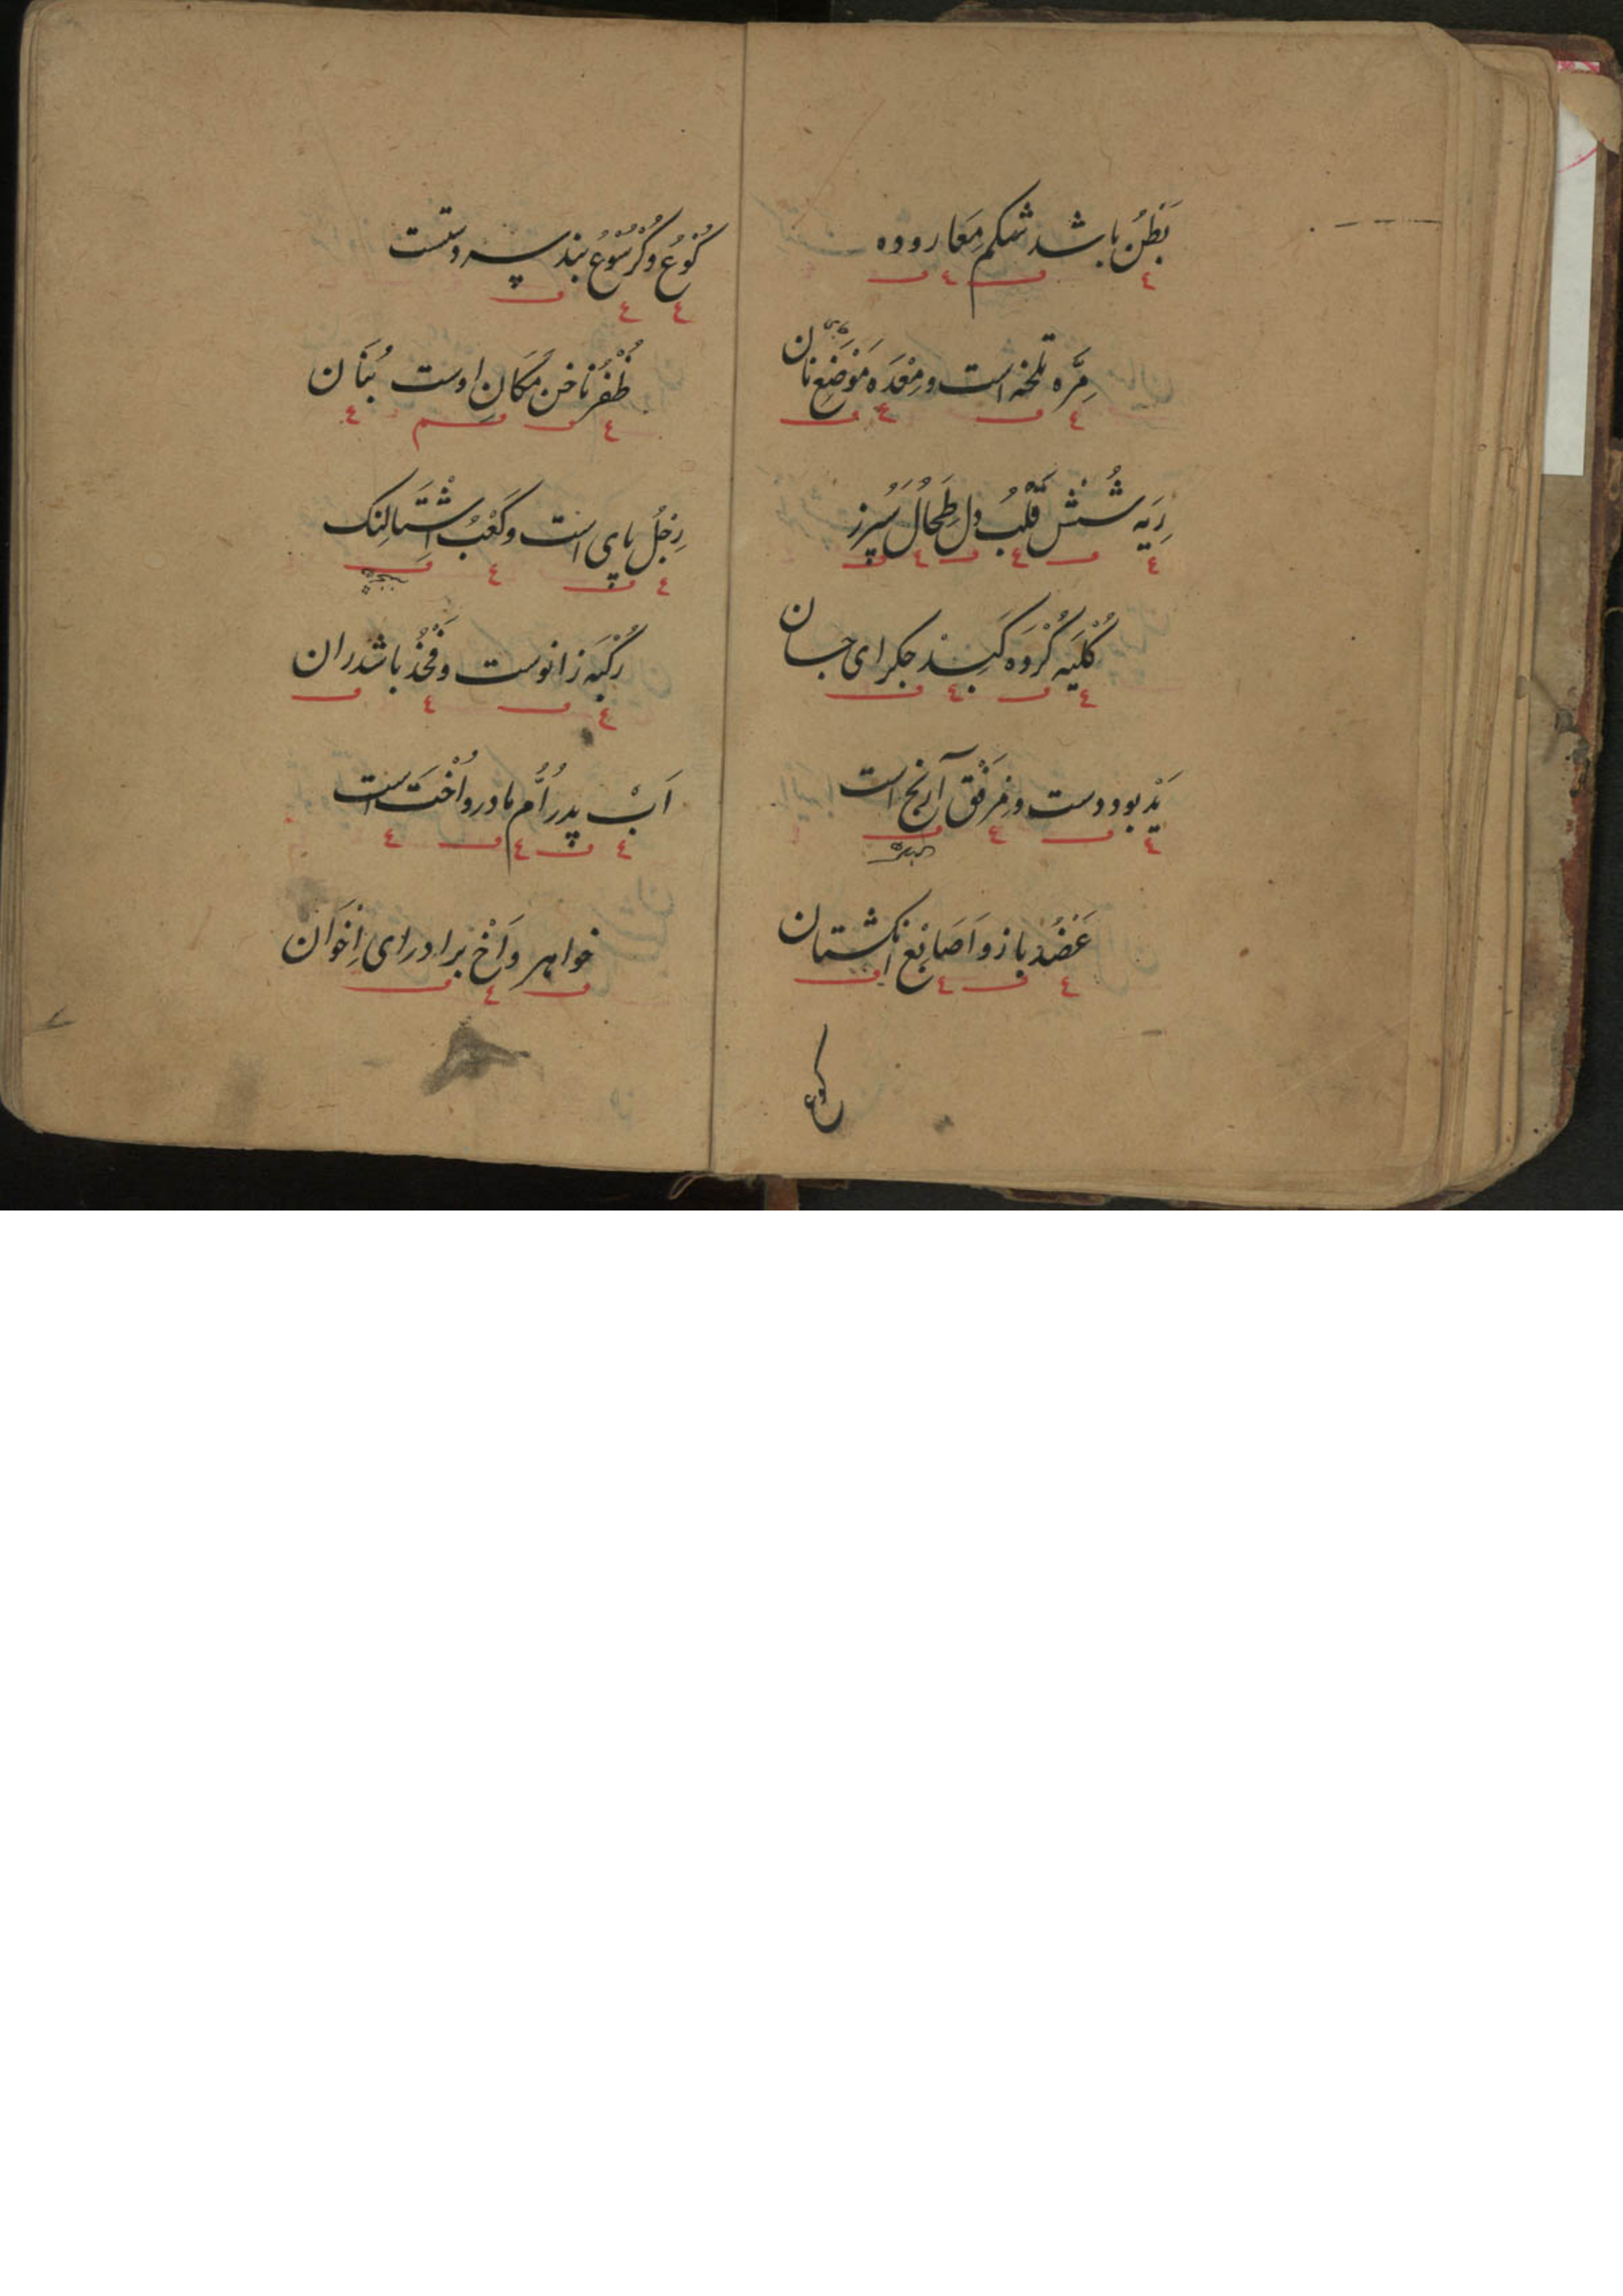 بَطْنُ باشد شکم مِعَا روده
مِرَّه تلخه است و مِعْدَه مَوْضَعِ نان
رِیَه شُشْ قَلْبُ دل طِحَالُ سُپُرز
کُلْیَه گُرْوَه کَبِدْ جگر ای جان
یَدْ بود دست و مِرْفَقْ آرنج است
عَضُدْ بازو اَصَابِعْ انگشتان
کوع
کُوْعُ و کُرْسُوْعُ بند پسر دستست
ظُفْرُ ناخن مَکَانِ اوست بُنَان
رِجْلُ پای است و کَعْبُ اِشْتَالِنْک
رُکْبَه زانوست و فَخْذُ باشد ران
اَبْ پدر اُمُّ مادر و اُخْتَ است
خواهر و اَخْ برادر ای اِخْوَان